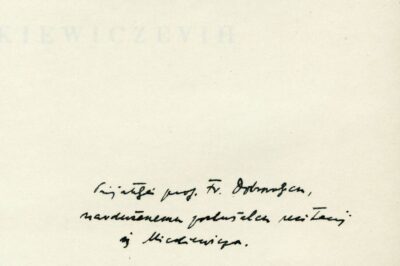 KIEWICZEVIH
prof. Fr. Dobrovoljcu,
navdušenemu poslušalcu recitacij
iz Mickiewicza.